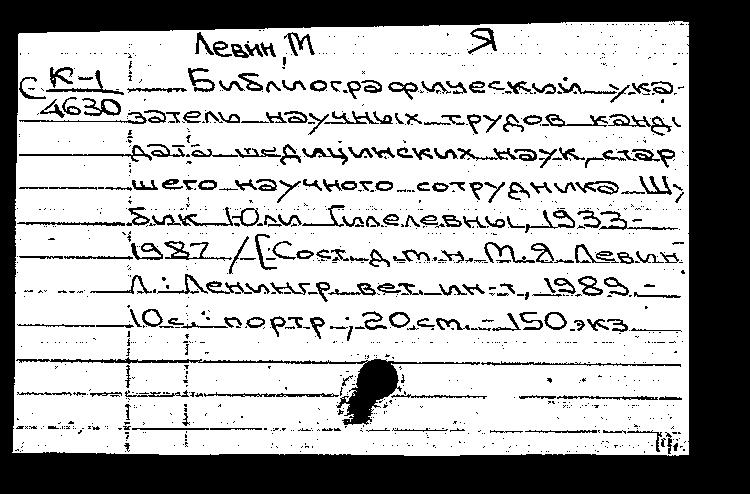 Левин, М Я
С К-1 Библиографический ука-
4630 затель научных трудов канди
дата медицинских наук, стар
шего научного сотрудника Шу
бик Юли Гилелевны, 1933-
1987 / [Сост. д.т.н. М.Я Левин
Л.: Ленингр. вет. ин-т, 1989.-
10с.: портр; 20см.- 150экз